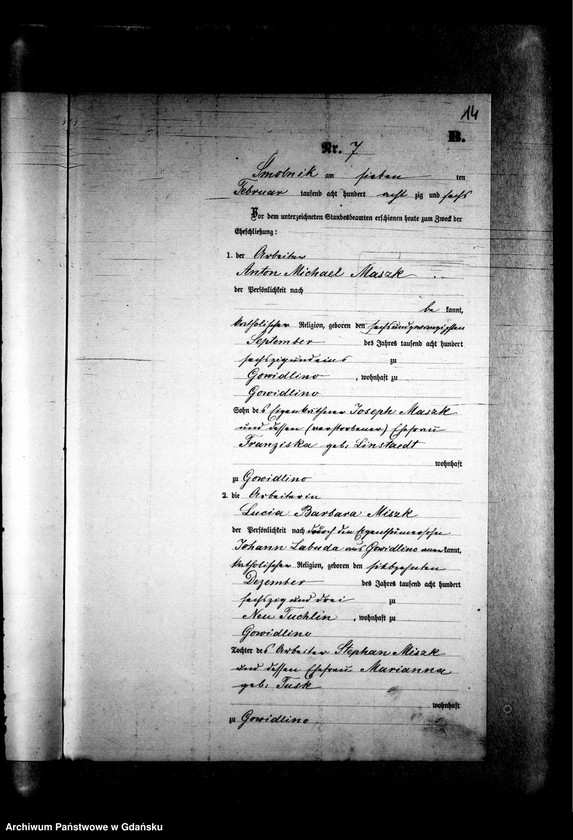 14
B.
Nr. 7
Smolnik am sieben ten
Februar tausend acht hundert acht zig und sechs
Vor dem unterzeichneten Standesbeamten erschienen heute zum Zweck der
Eheschließung:
1. der Arbeiter
Anton Michael Maszk
der Persönlichkeit nach
be kannt,
katholischer Religion, geboren den sechsundzwanzigsten
September des Jahres tausend acht hundert
sechszigundeins zu
Gowidlino, wohnhaft zu
Gowidlino
Sohn des Eigenkäthner Joseph Maszk
und dessen (verstorbener) Ehefrau
Franziska geb: Linstaedt
wohnhaft
zu Gowidlino
2. die Arbeiterin
Lucia Barbara Miszk
der Persönlichkeit nach durch den Eigenthümersohn
Johann Labuda aus Gowidlino aner kannt,
katholischer Religion, geboren den siebzehnten
Dezember des Jahres tausend acht hundert
sechszig und drei zu
Neu Tuchlin, wohnhaft zu
Gowidlino
Tochter des Arbeiter Stephan Miszk
und dessen Ehefrau Marianna
geb: Tusk
wohnhaft
zu Gowidlino
Archiwum Państwowe w Gdańsku